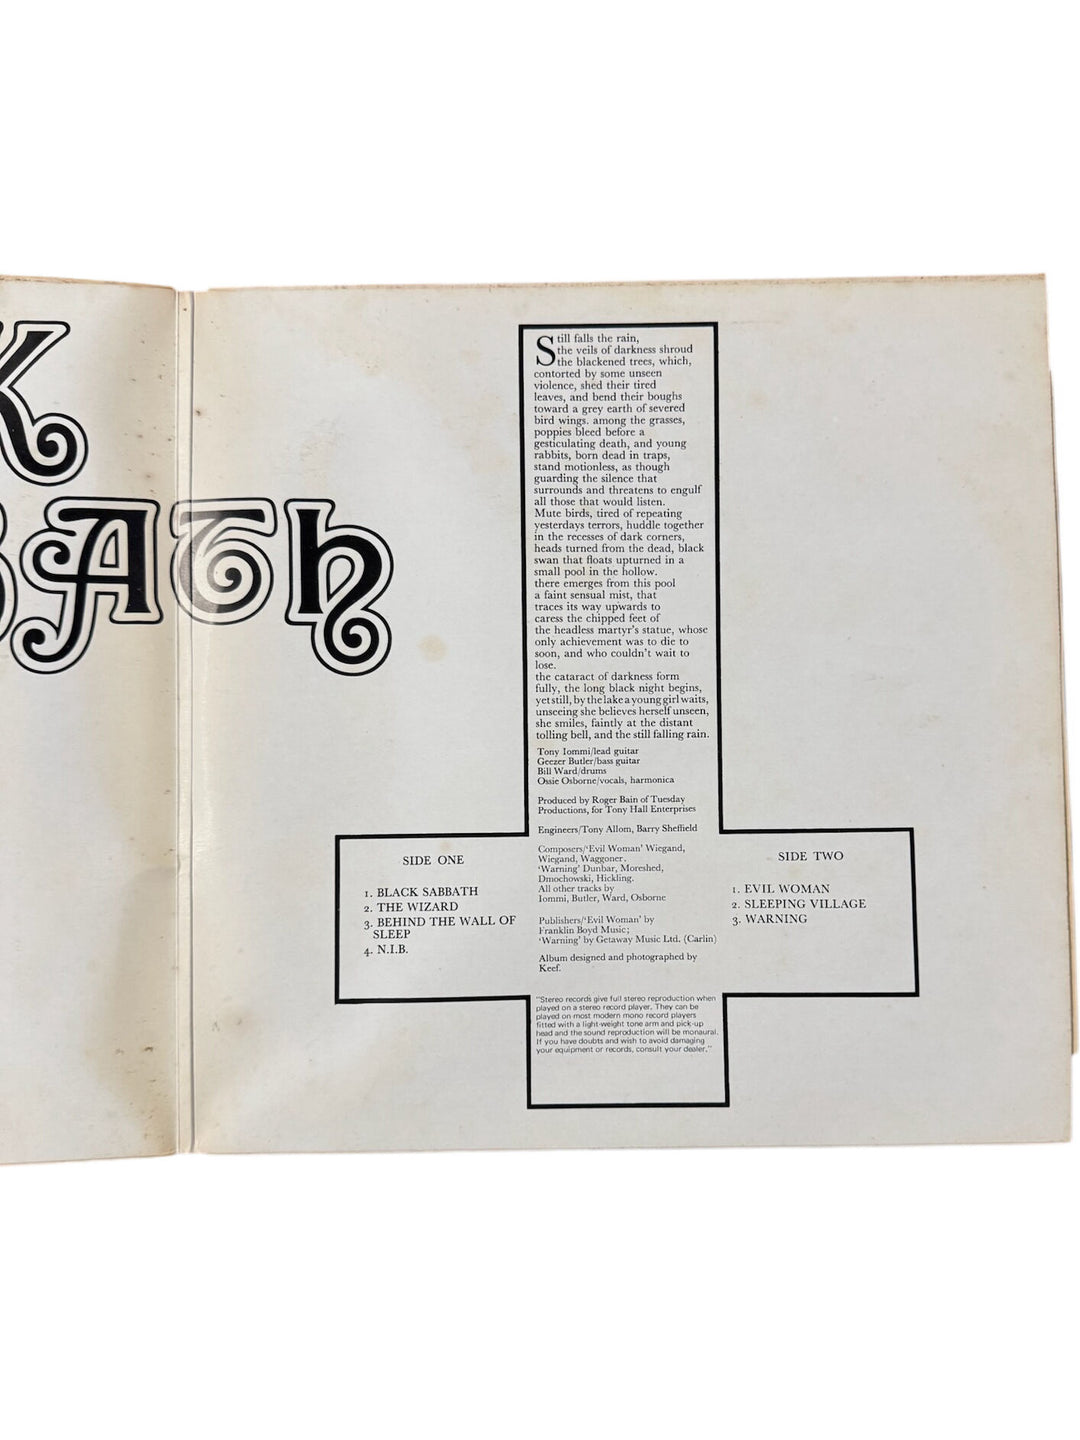 K
BATH
Still falls the rain,
the veils of darkness shroud
the blackened trees, which,
contorted by some unseen
violence, shed their tired
leaves, and bend their boughs
toward a grey earth of severed
bird wings. among the grasses,
poppies bleed before a
gesticulating death, and young
rabbits, born dead in traps,
stand motionless, as though
guarding the silence that
surrounds and threatens to engulf
all those that would listen.
Mute birds, tired of repeating
yesterdays terrors, huddle together
in the recesses of dark corners,
heads turned from the dead, black
swan that floats upturned in a
small pool in the hollow.
there emerges from this pool
a faint sensual mist, that
traces its way upwards to
caress the chipped feet of
the headless martyr's statue, whose
only achievement was to die to
soon, and who couldn't wait to
lose.
the cataract of darkness form
fully, the long black night begins,
yet still, by the lake a young girl waits,
unseeing she believes herself unseen,
she smiles, faintly at the distant
tolling bell, and the still falling rain.
Tony Iommi/lead guitar
Geezer Butler/bass guitar
Bill Ward/drums
Ossie Osborne/vocals, harmonica
Produced by Roger Bain of Tuesday
Productions, for Tony Hall Enterprises
Engineers/Tony Allom, Barry Sheffield
Composers/'Evil Woman' Wiegand,
Wiegand, Waggoner.
'Warning' Dunbar, Moreshed,
Dmochowski, Hickling.
All other tracks by
Iommi, Butler, Ward, Osborne
Publishers/'Evil Woman' by
Franklin Boyd Music;
'Warning' by Getaway Music Ltd. (Carlin)
Album designed and photographed by
Keef.
SIDE ONE
1. BLACK SABBATH
2. THE WIZARD
3. BEHIND THE WALL OF
SLEEP
4. N.I.B.
SIDE TWO
1. EVIL WOMAN
2. SLEEPING VILLAGE
3. WARNING
"Stereo records give full stereo reproduction when
played on a stereo record player. They can be
played on most modern mono record players
fitted with a light-weight tone arm and pick-up
head and the sound reproduction will be monaural.
If you have doubts and wish to avoid damaging
your equipment or records, consult your dealer."